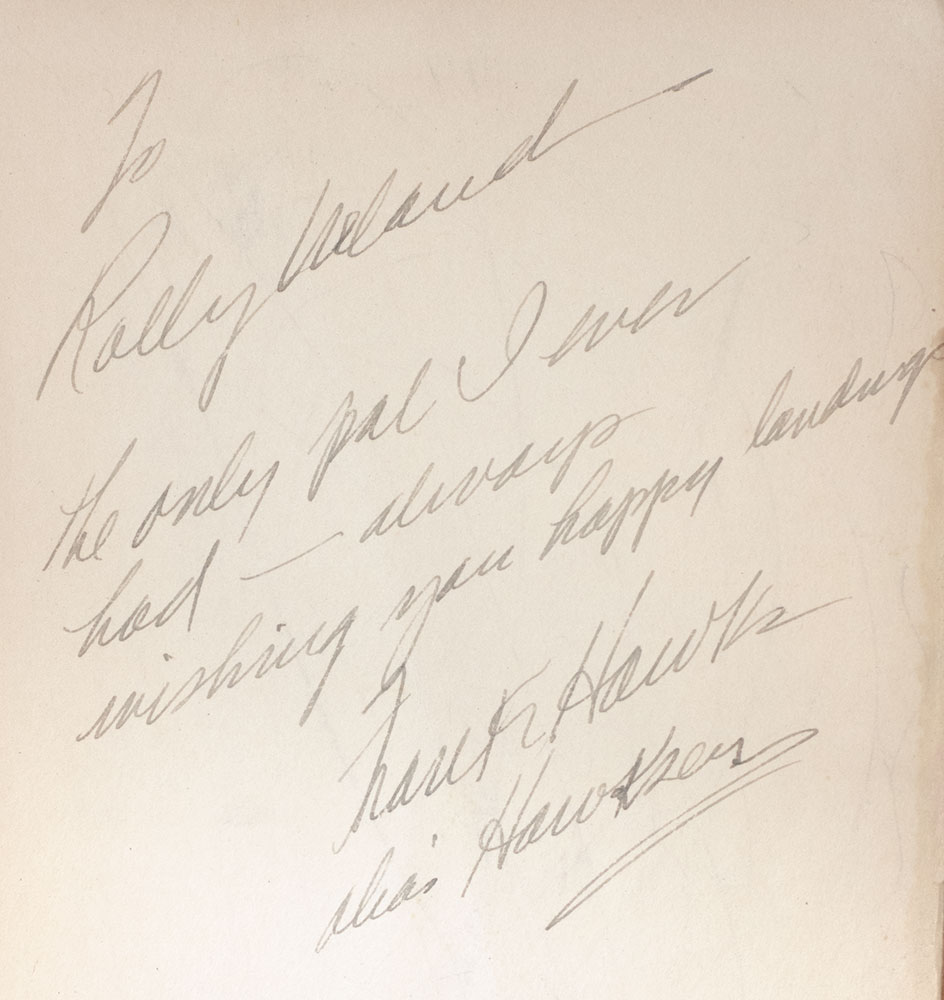 To
Rolly Ueland
the only pal I ever
had — always
wishing you happy landings
Frank Hawks
alias Hawkser